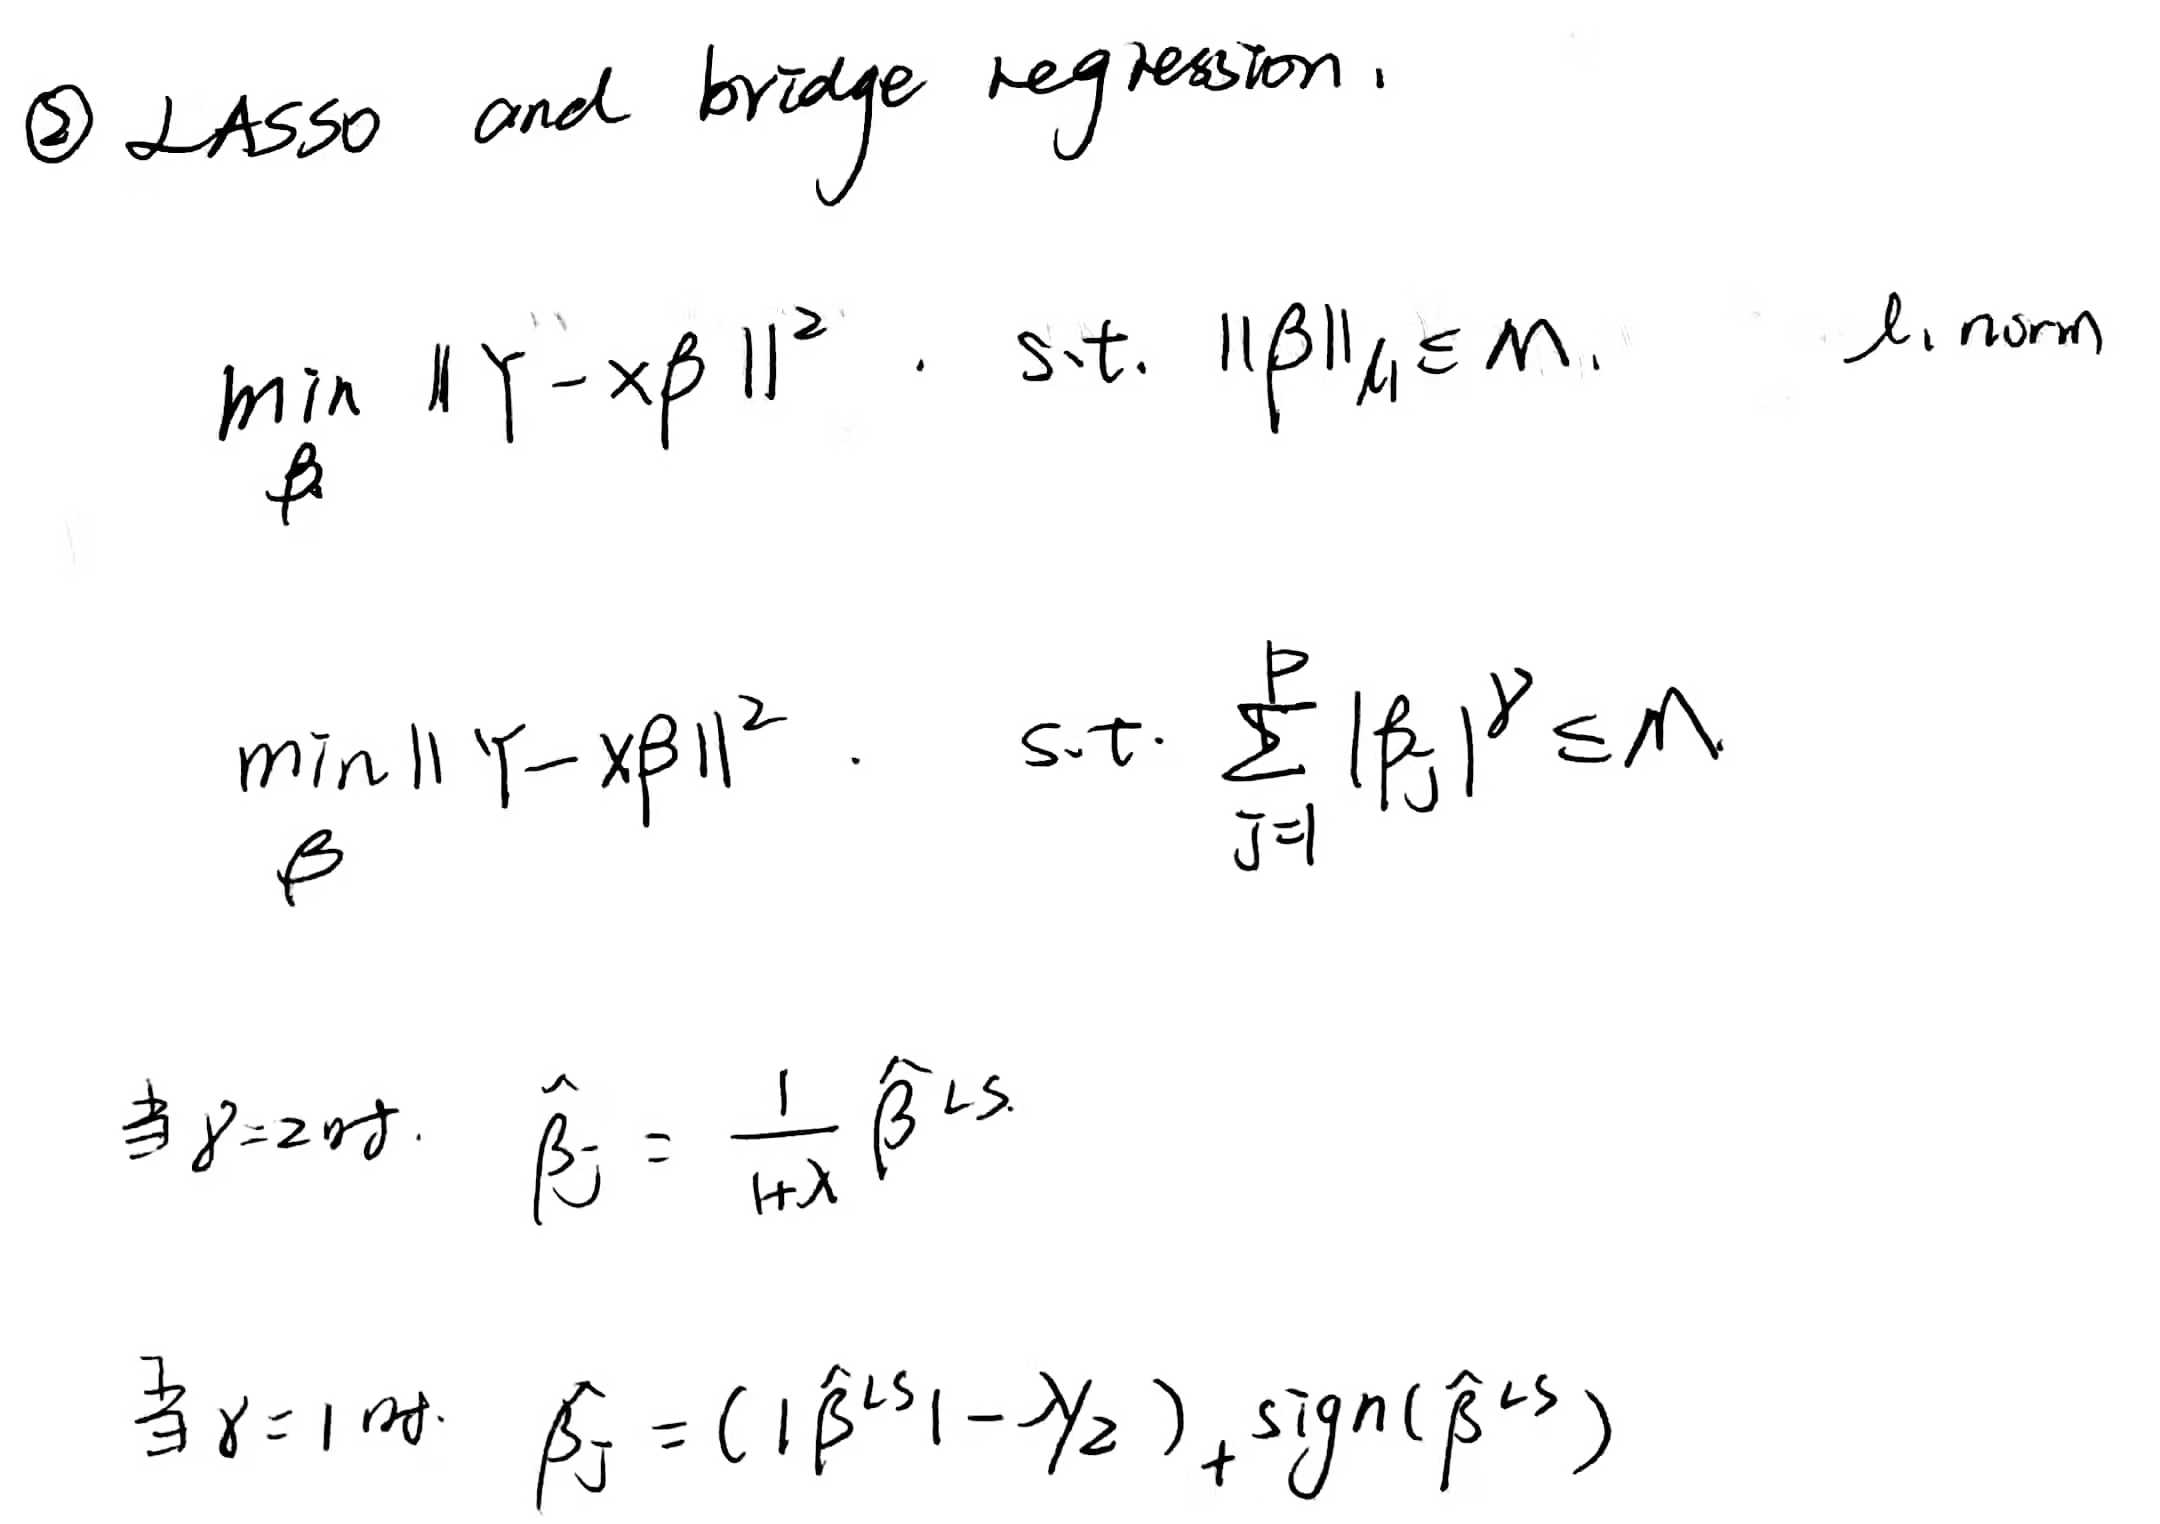 ② LASSO and bridge regression.
min ‖Y-xβ‖². s.t. ‖β‖ℓ₁ ≤ M. ℓ₁ norm
β
min ‖Y-xβ‖². s.t. Σ |βj|^γ ≤ M.
β
p
j=1
当 γ=2时. β̂j = 1/(1+λ) β̂^LS.
当 γ=1时. β̂j = (|β̂^LS| - λ/2)₊ sign(β̂^LS)